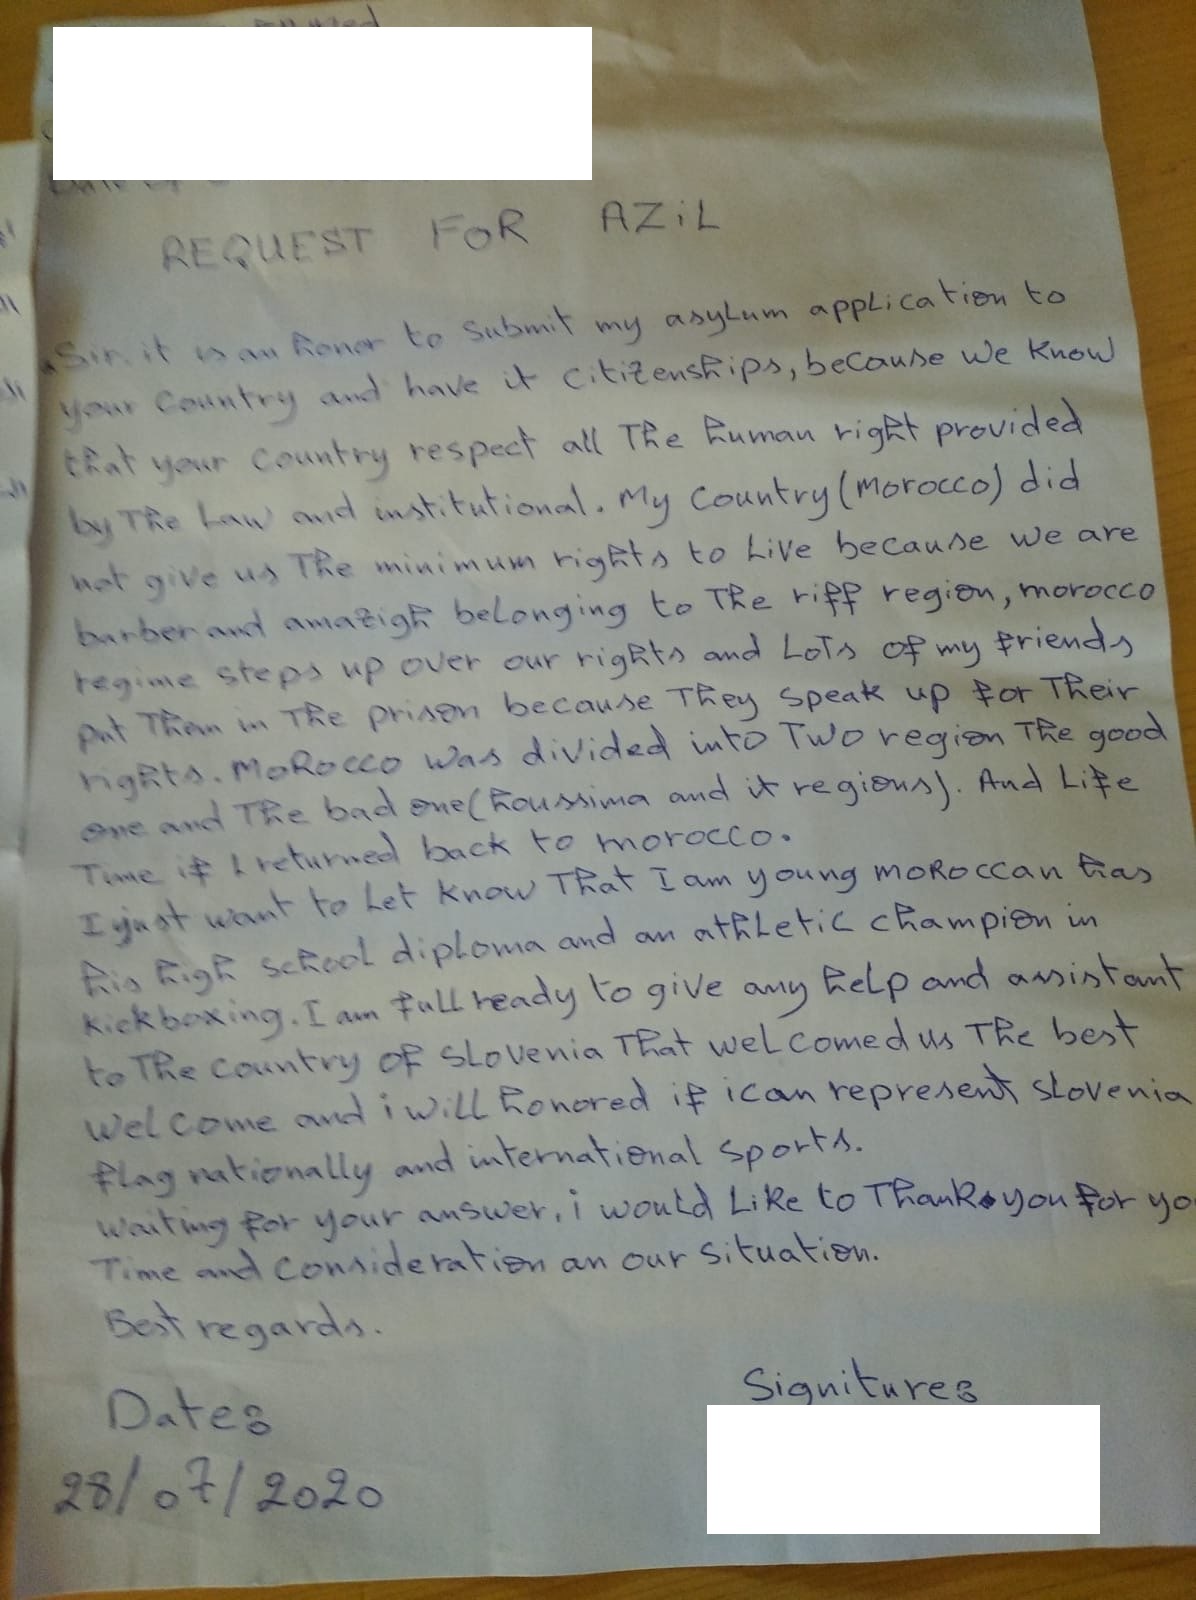 REQUEST FOR AZiL
Sir. it is an honor to submit my asylum application to
your country and have it citizenships, because we know
that your country respect all The human right provided
by The Law and institutional. My country (Morocco) did
not give us The minimum rights to Live because we are
barber and amazigh belonging to The riff region, morocco
regime steps up over our rights and Lots of my friends
put Them in The prison because They speak up for Their
rights. MoRocco was divided into Two region The good
one and The bad one (houssima and it regions). And Life
Time if I returned back to morocco.
I just want to Let know That I am young moRoccan has
his high school diploma and an athletic champion in
kickboxing. I am full ready to give any help and assistant
to The country of Slovenia That welcomed us The best
welcome and i will honored if i can represent slovenia
flag nationally and international sports.
waiting for your answer, i would Like to Thank you for yo
Time and consideration an our situation.
Best regards.
Dates Signitures
28/07/2020